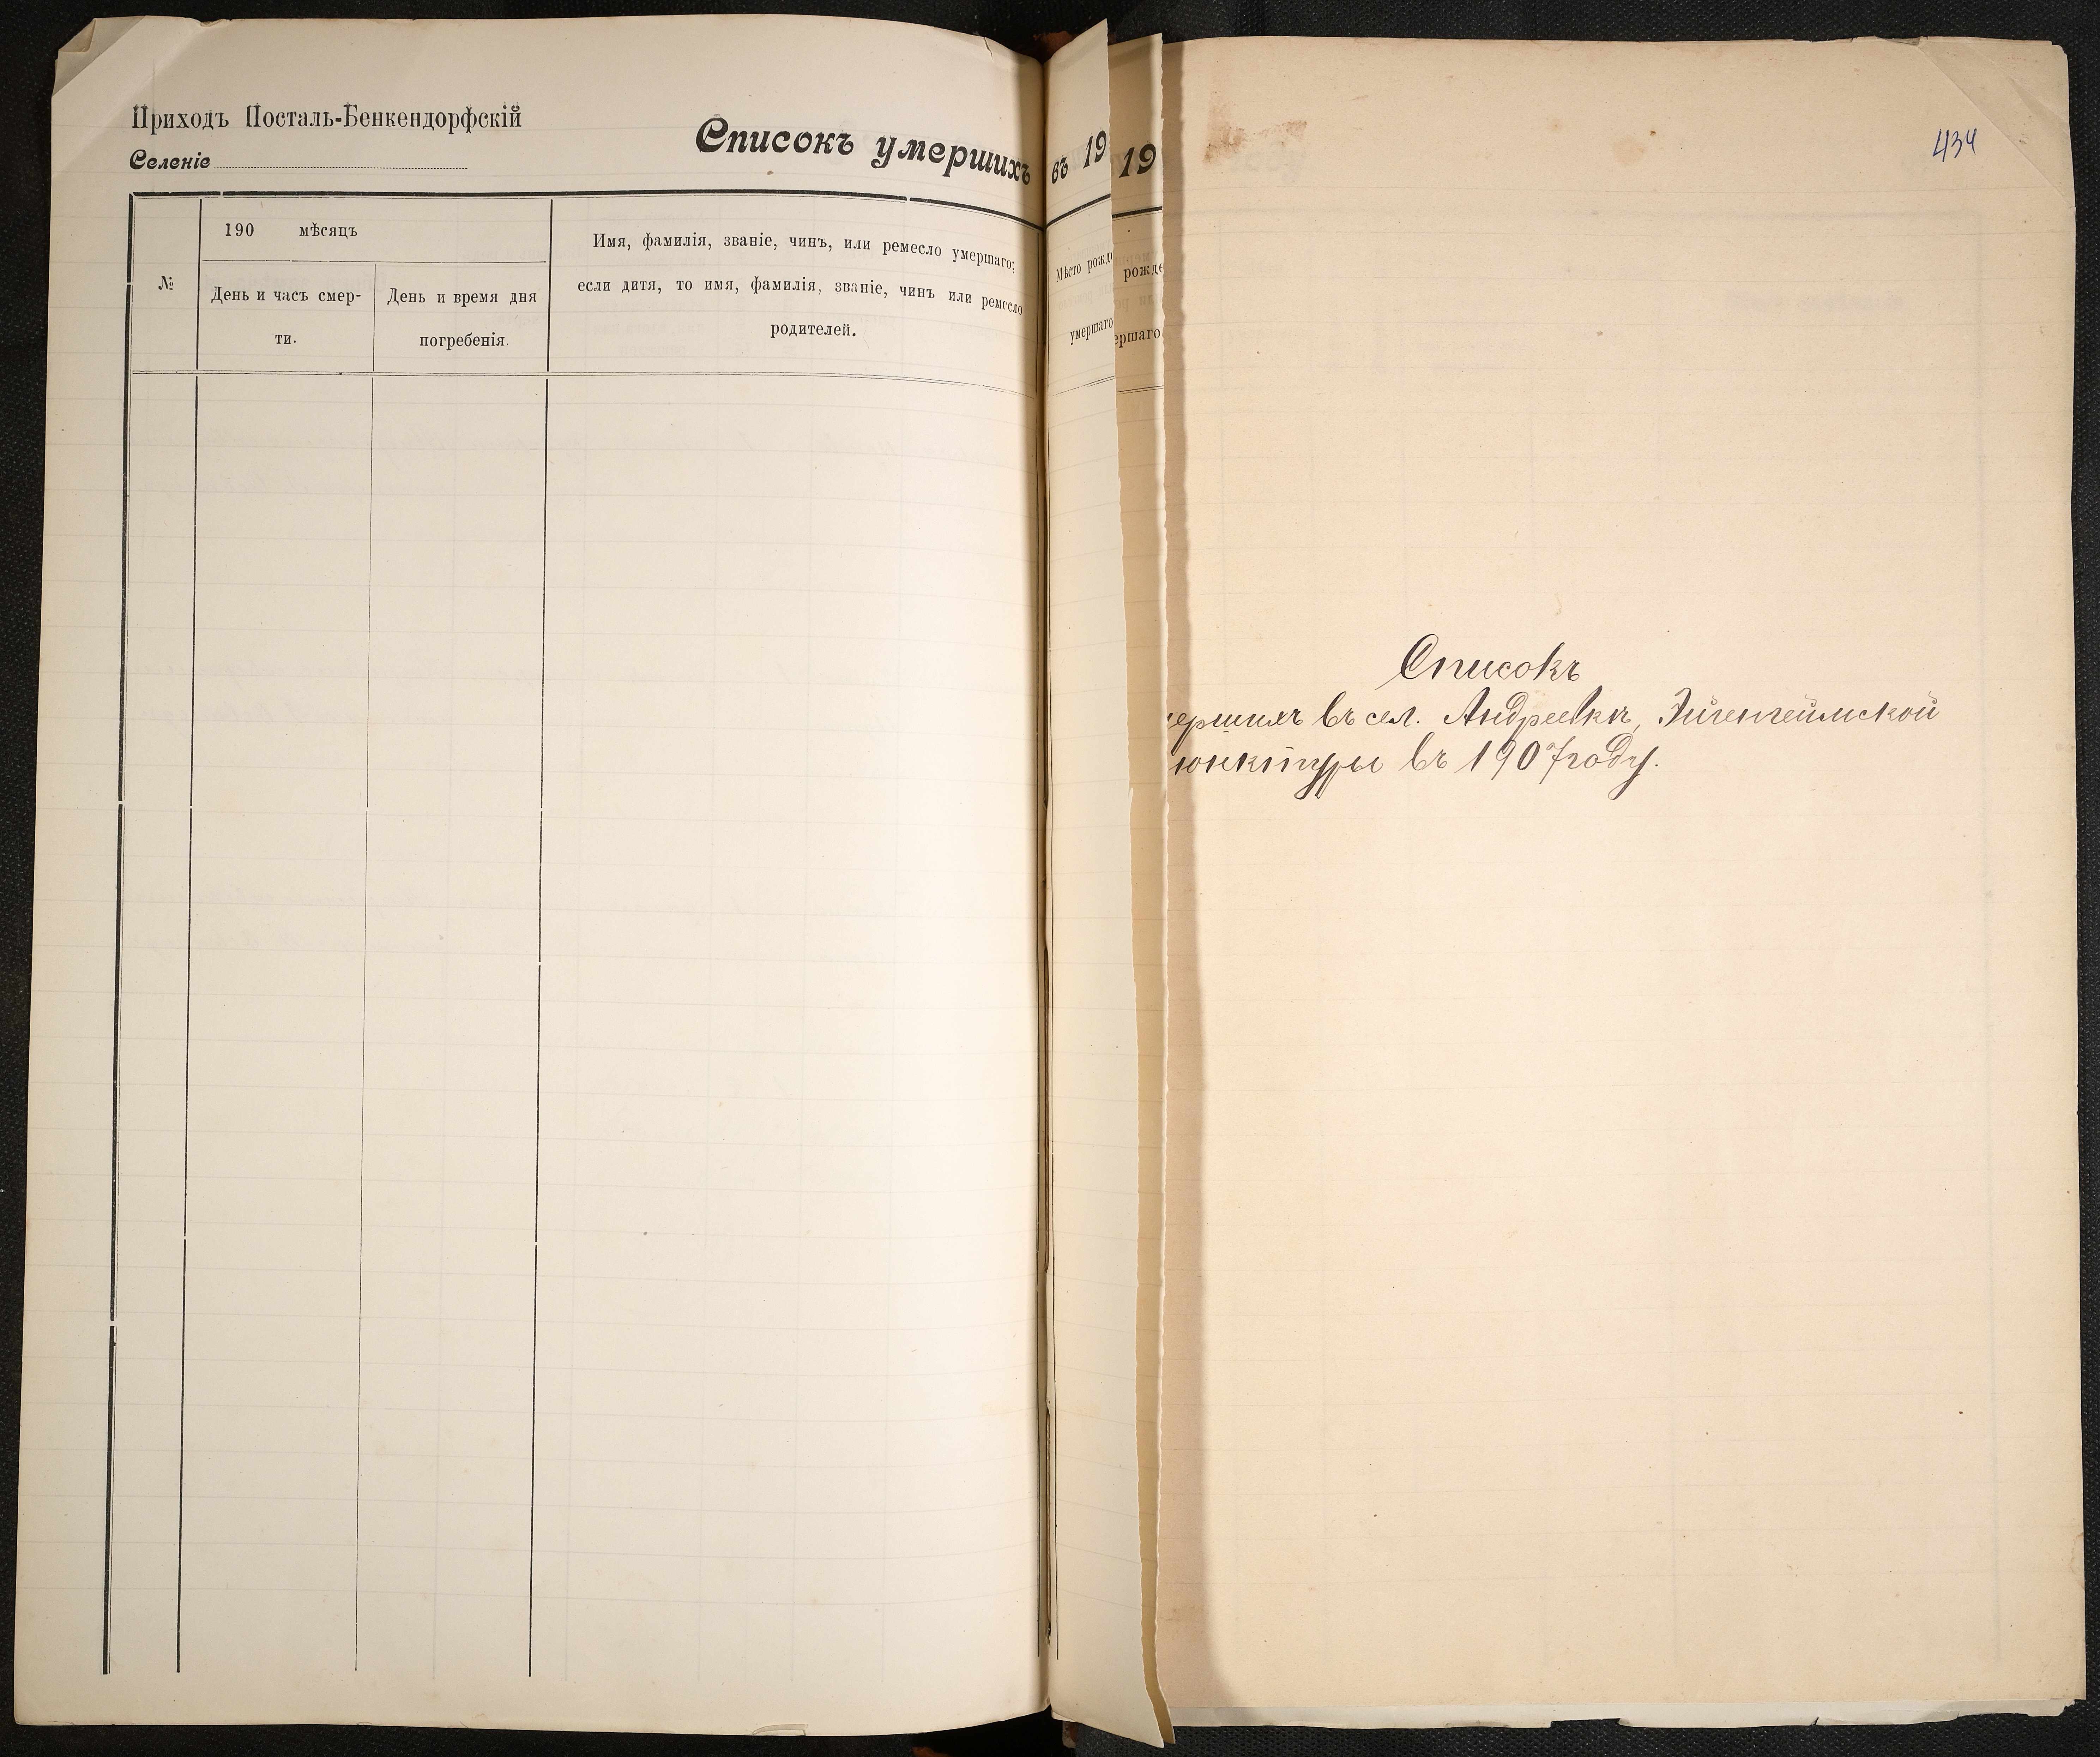 Приходъ Посталь-Бенкендорфскій
Селеніе
Списокъ умершихъ
въ 19
19
№
190 мѣсяцъ
День и часъ смер-
ти.
День и время дня
погребенія.
Имя, фамилія, званіе, чинъ, или ремесло умершаго;
если дитя, то имя, фамилія, званіе, чинъ или ремесло
родителей.
Мѣсто рожде
умершаго
рожде
ершаго
434
Списокъ
ершихъ въ сел. Андреевкѣ, Эйгенгеймской
юнктуры въ 1907 году.